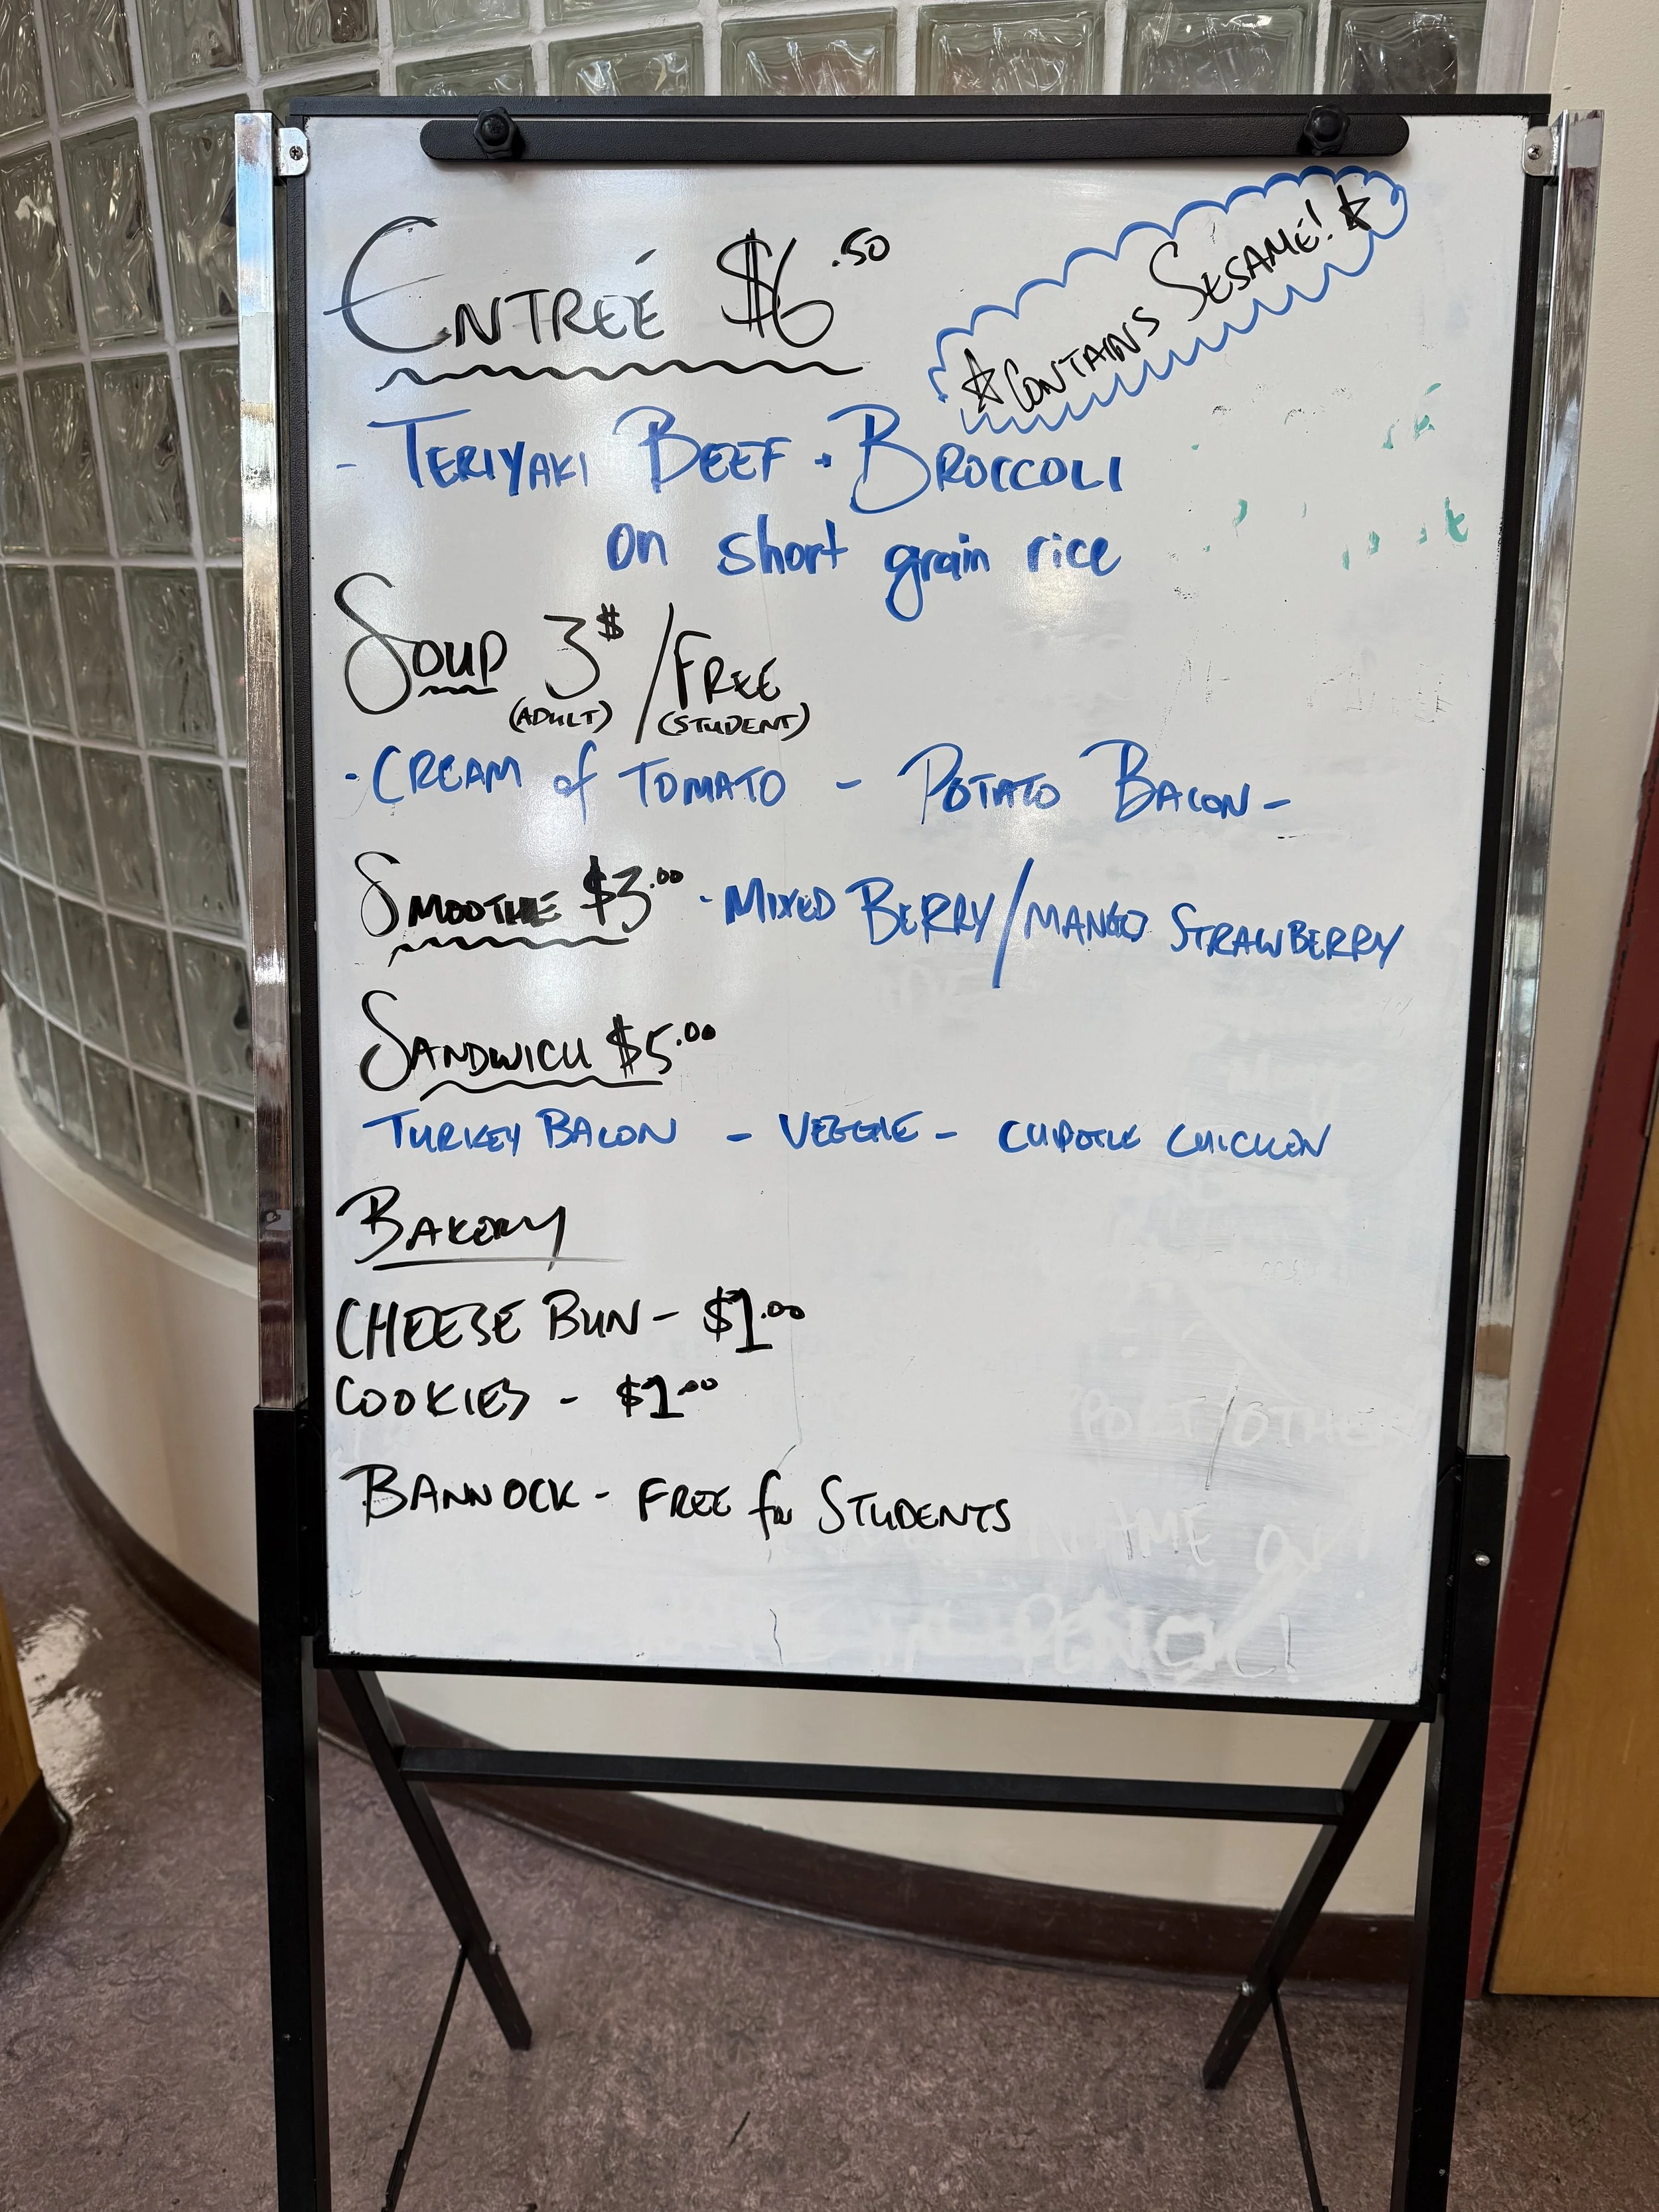 ENTRÉE $6.50
☆CONTAINS SESAME!☆
- TERIYAKI BEEF + BROCCOLI
on short grain rice
SOUP 3$ / FREE
(ADULT) (STUDENT)
- CREAM of TOMATO - POTATO BACON -
SMOOTHIE $3.00 - MIXED BERRY/MANGO STRAWBERRY
SANDWICH $5.00
TURKEY BACON - VEGGIE - CHIPOTLE CHICKEN
BAKERY
CHEESE BUN - $1.00
COOKIES - $1.00
BANNOCK - FREE for STUDENTS
PORT/OTHER
NAME ON